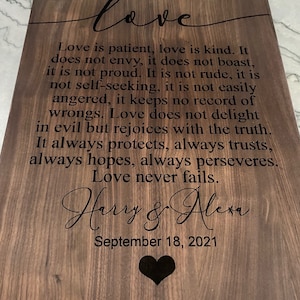 love
Love is patient, love is kind. It
does not envy, it does not boast,
it is not proud. It is not rude, it is
not self-seeking, it is not easily
angered, it keeps no record of
wrongs. Love does not delight
in evil but rejoices with the truth.
It always protects, always trusts,
always hopes, always perseveres.
Love never fails.
Harry & Alexa
September 18, 2021